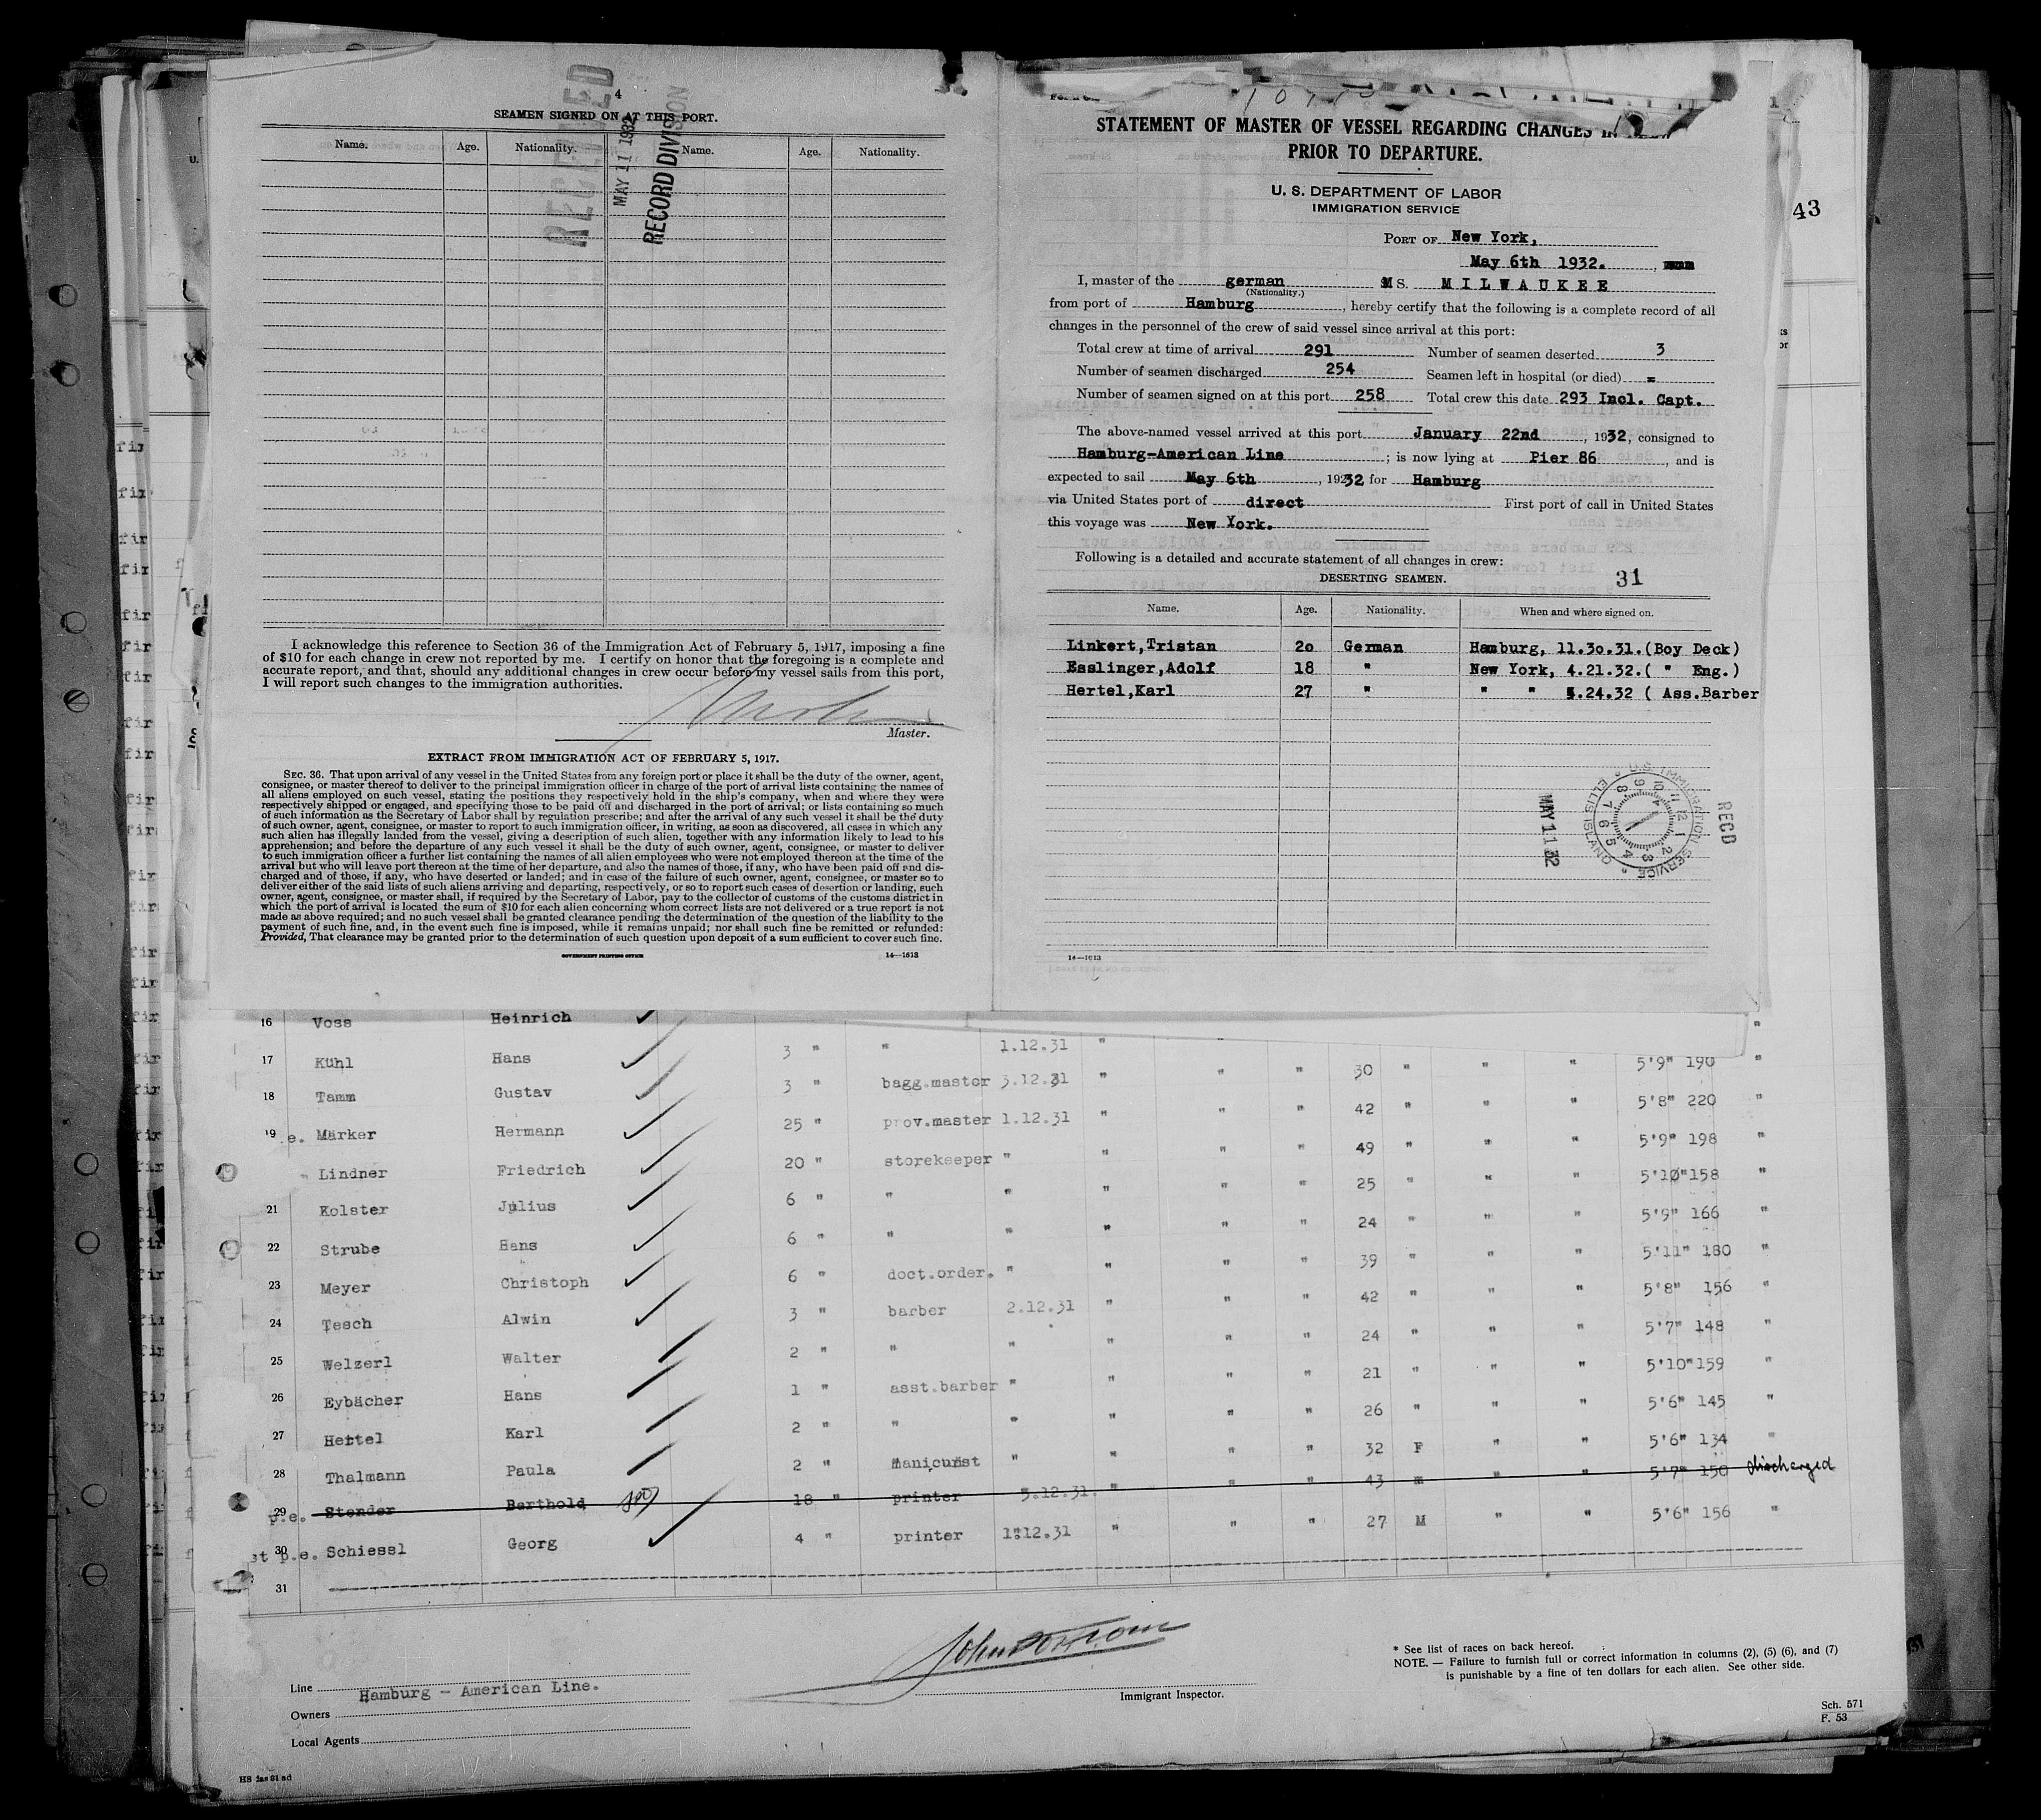 4
SEAMEN SIGNED ON AT THIS PORT.
Name. Age. Nationality. Name. Age. Nationality.
RECEIVED
MAY 11 1932
RECORD DIVISION
I acknowledge this reference to Section 36 of the Immigration Act of February 5, 1917, imposing a fine
of $10 for each change in crew not reported by me. I certify on honor that the foregoing is a complete and
accurate report, and that, should any additional changes in crew occur before my vessel sails from this port,
I will report such changes to the immigration authorities.
Master.
EXTRACT FROM IMMIGRATION ACT OF FEBRUARY 5, 1917.
SEC. 36. That upon arrival of any vessel in the United States from any foreign port or place it shall be the duty of the owner, agent,
consignee, or master thereof to deliver to the principal immigration officer in charge of the port of arrival lists containing the names of
all aliens employed on such vessel, stating the positions they respectively hold in the ship's company, when and where they were
respectively shipped or engaged, and specifying those to be paid off and discharged in the port of arrival; or lists containing so much
of such information as the Secretary of Labor shall by regulation prescribe; and after the arrival of any such vessel it shall be the duty
of such owner, agent, consignee, or master to report to such immigration officer, in writing, as soon as discovered, all cases in which any
such alien has illegally landed from the vessel, giving a description of such alien, together with any information likely to lead to his
apprehension; and before the departure of any such vessel it shall be the duty of such owner, agent, consignee, or master to deliver
to such immigration officer a further list containing the names of all alien employees who were not employed thereon at the time of the
arrival but who will leave port thereon at the time of her departure, and also the names of those, if any, who have been paid off and dis-
charged and of those, if any, who have deserted or landed; and in case of the failure of such owner, agent, consignee, or master so to
deliver either of the said lists of such aliens arriving and departing, respectively, or so to report such cases of desertion or landing, such
owner, agent, consignee, or master shall, if required by the Secretary of Labor, pay to the collector of customs of the customs district in
which the port of arrival is located the sum of $10 for each alien concerning whom correct lists are not delivered or a true report is not
made as above required; and no such vessel shall be granted clearance pending the determination of the question of the liability to the
payment of such fine, and, in the event such fine is imposed, while it remains unpaid; nor shall such fine be remitted or refunded:
Provided, That clearance may be granted prior to the determination of such question upon deposit of a sum sufficient to cover such fine.
GOVERNMENT PRINTING OFFICE 14—1613
STATEMENT OF MASTER OF VESSEL REGARDING CHANGES IN
PRIOR TO DEPARTURE.
U. S. DEPARTMENT OF LABOR
IMMIGRATION SERVICE
43
PORT OF New York,
May 6th 1932.
I, master of the german MS. MILWAUKEE
(Nationality.)
from port of Hamburg, hereby certify that the following is a complete record of all
changes in the personnel of the crew of said vessel since arrival at this port:
Total crew at time of arrival 291 Number of seamen deserted 3
Number of seamen discharged 254 Seamen left in hospital (or died) =
Number of seamen signed on at this port 258 Total crew this date 293 Incl. Capt.
The above-named vessel arrived at this port January 22nd, 1932, consigned to
Hamburg-American Line; is now lying at Pier 86, and is
expected to sail May 6th, 1932 for Hamburg
via United States port of direct First port of call in United States
this voyage was New York.
Following is a detailed and accurate statement of all changes in crew:
DESERTING SEAMEN. 31
Name. Age. Nationality. When and where signed on.
Linkert,Tristan 20 German Hamburg, 11.30.31.(Boy Deck)
Esslinger,Adolf 18 " New York, 4.21.32.( " Eng.)
Hertel,Karl 27 " " " 4.24.32 ( Ass.Barber
U.S. IMMIGRATION SERVICE ELLIS ISLAND
RECD
MAY 11 32
14—1613
16 Voss Heinrich
17 Kühl Hans 3 " " 1.12.31 " 5'9" 190 "
18 Tamm Gustav 3 " bagg.master 3.12.31 " " " 30 " " " 5'8" 220 "
19 .e. Märker Hermann 25 " prov.master 1.12.31 " " " 42 " " " 5'9" 198 "
Lindner Friedrich 20 " storekeeper " " " " 49 " " " 5'10"158 "
21 Kolster Julius 6 " " " " " " 25 " " " 5'9" 166 "
22 Strube Hans 6 " " " " " " 24 " " " 5'11" 180 "
23 Meyer Christoph 6 " doct.order. " " " " 39 " " " 5'8" 156 "
24 Tesch Alwin 3 " barber 2.12.31 " " " 42 " " " 5'7" 148 "
25 Welzerl Walter 2 " " " " " " 24 " " " 5'10"159 "
26 Eybächer Hans 1 " asst.barber " " " " 21 " " " 5'6" 145 "
27 Hertel Karl 2 " " " " " " 26 " " " 5'6" 134 "
28 Thalmann Paula 2 " manicurist " " " " 32 F " " 5'7" 150
29 p.e. Stender Berthold 18 " printer 5.12.31. " " " 43 " " " discharged
30 st p.e. Schiessl Georg 4 " printer 1.12.31 " " " 27 M " " 5'6" 156 "
31
Line
Hamburg - American Line.
Owners
Local Agents
Immigrant Inspector.
* See list of races on back hereof.
NOTE. — Failure to furnish full or correct information in columns (2), (5) (6), and (7)
is punishable by a fine of ten dollars for each alien. See other side.
Sch. 571
F. 53